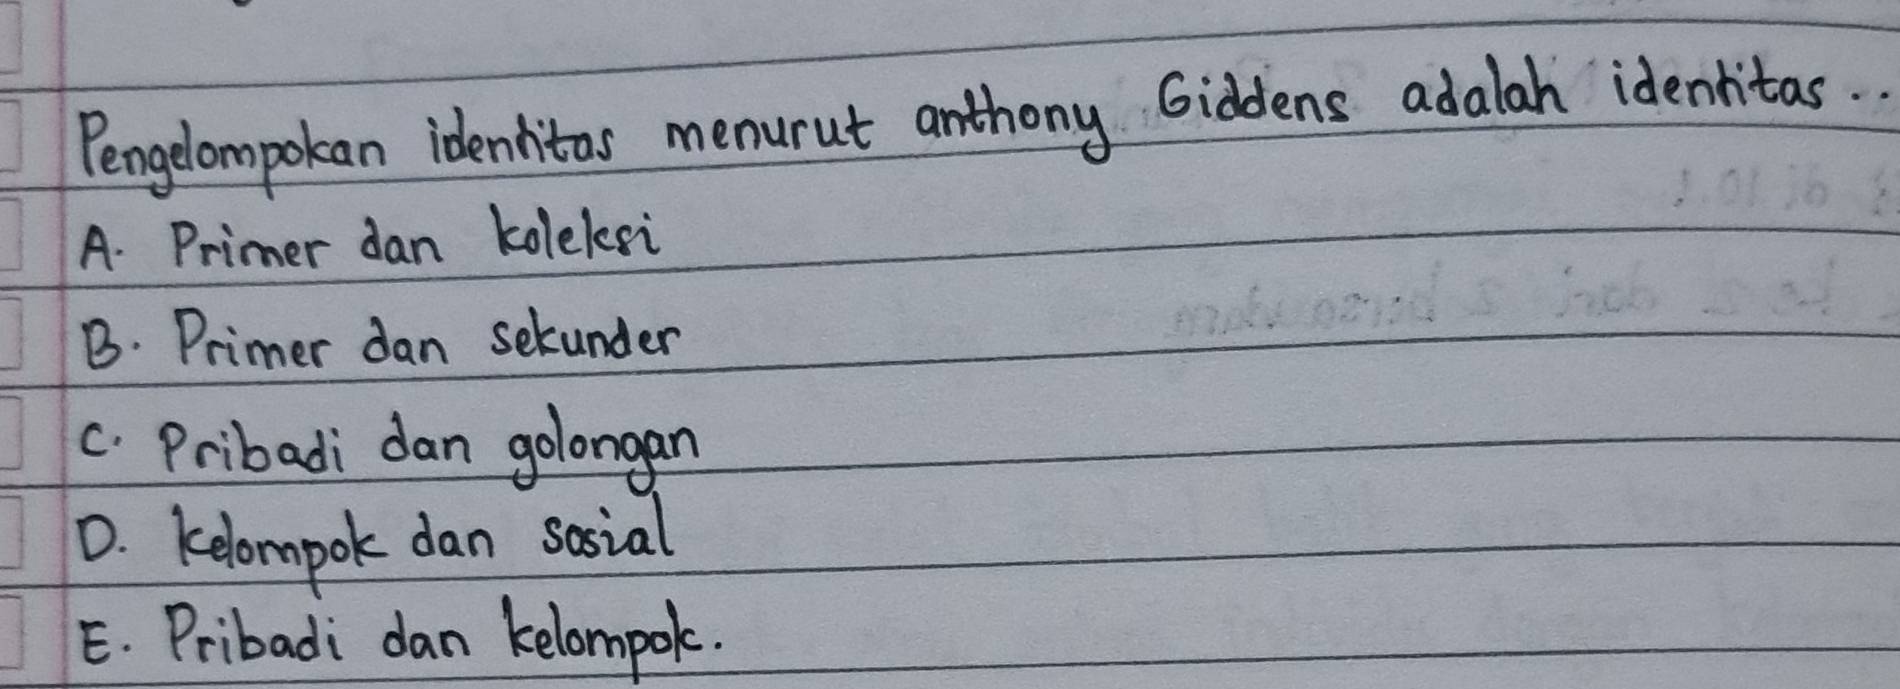 Pengelompokan identitas menurut anthony Giddens adalah identitas..
A. Primer dan koleksi
B. Primer dan sekunder
C. Pribadi dan golongan
D. Kelompok dan sosial
E. Pribadi dan kelompok.